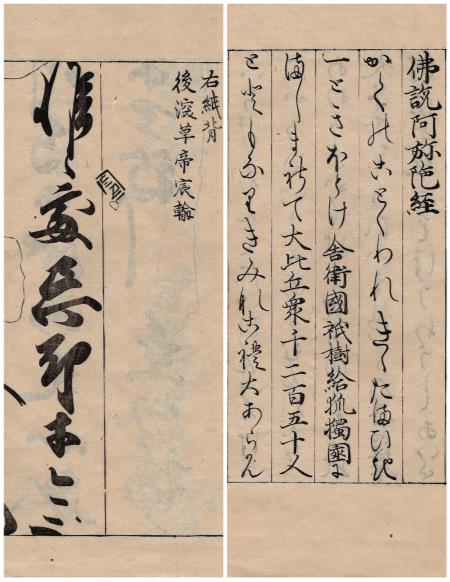 佛説阿弥陀経
かくのことくわれきゝたまひき
一ときほとけ舎衛國祇樹給孤獨園に
ましまして大比丘衆千二百五十人
とともなりきみなこれ大あらかん
右紙背
後深草帝宸翰